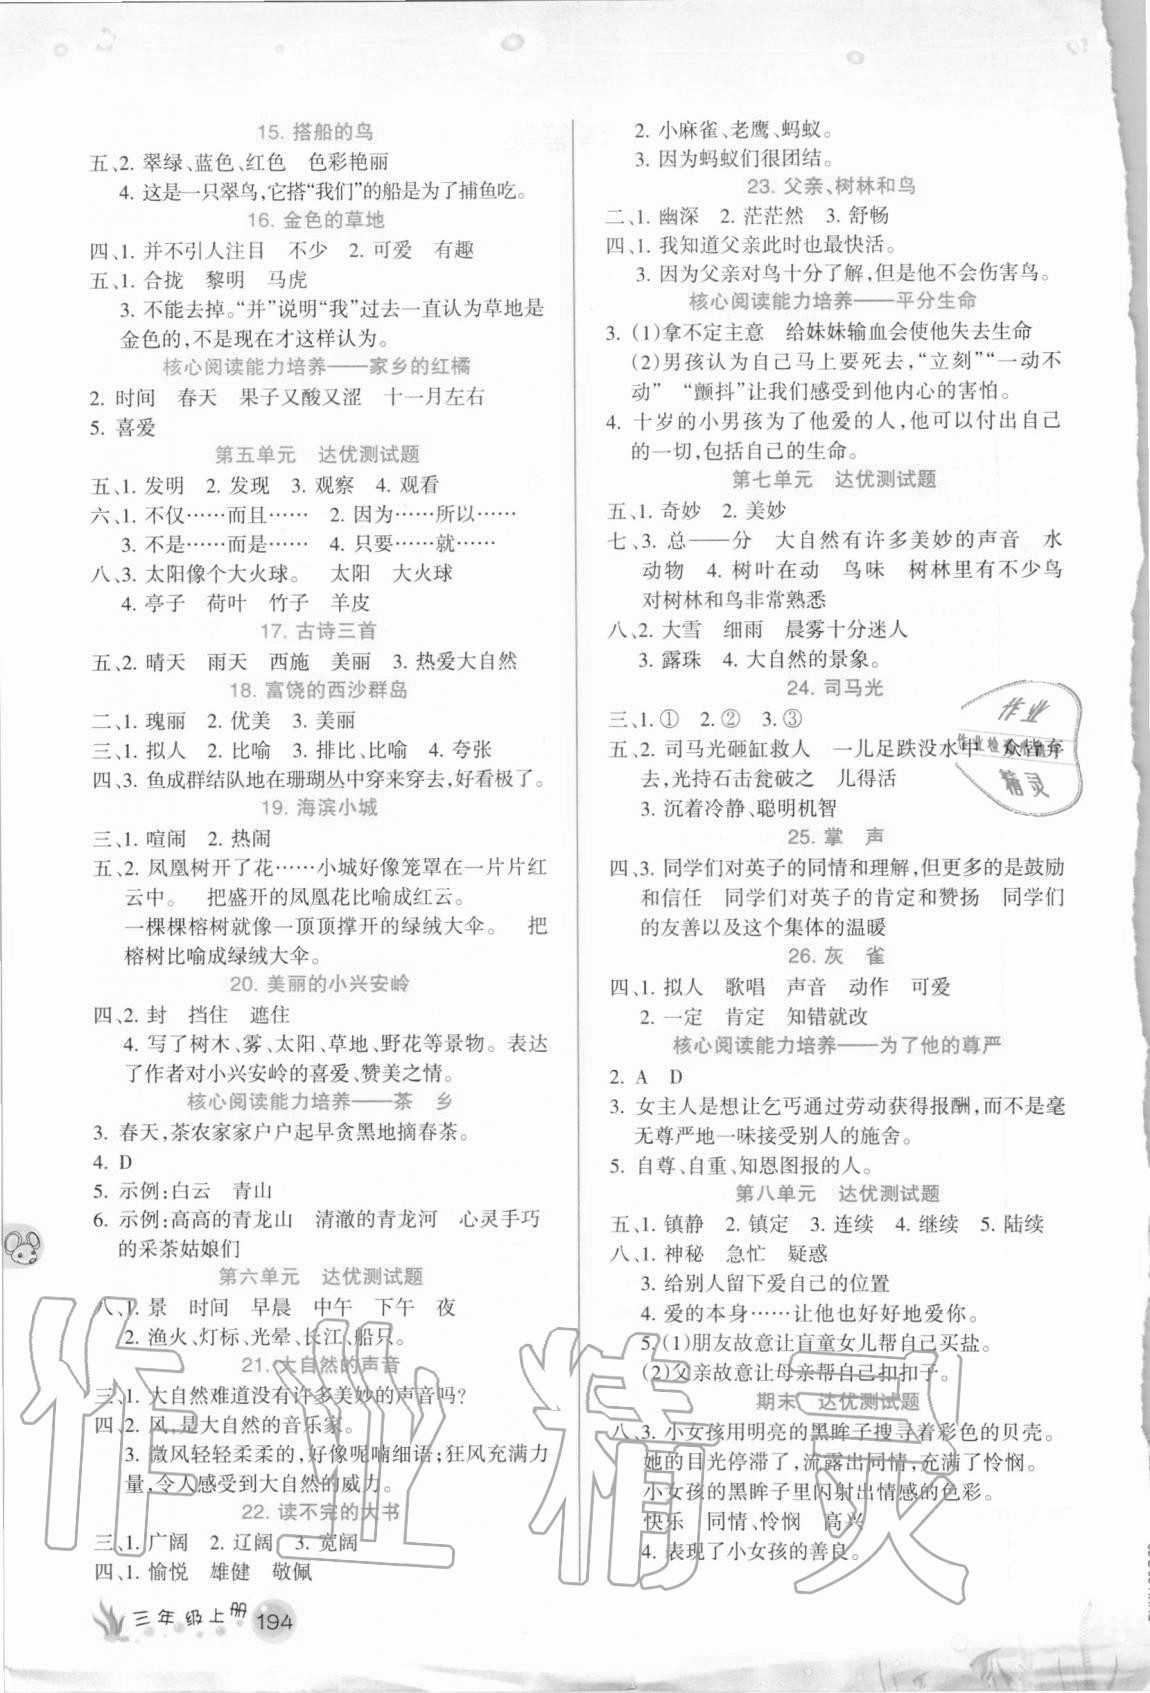 15. 搭船的鸟
五、2. 翠绿、蓝色、红色　色彩艳丽
4. 这是一只翠鸟,它搭“我们”的船是为了捕鱼吃。
16. 金色的草地
四、1. 并不引人注目　不少　2. 可爱　有趣
五、1. 合拢　黎明　马虎
3. 不能去掉。“并”说明“我”过去一直认为草地是
金色的,不是现在才这样认为。
核心阅读能力培养——家乡的红橘
2. 时间　春天　果子又酸又涩　十一月左右
5. 喜爱
第五单元　达优测试题
五、1. 发明　2. 发现　3. 观察　4. 观看
六、1. 不仅……而且……　2. 因为……所以……
3. 不是……而是……　4. 只要……就……
八、3. 太阳像个大火球。　太阳　大火球
4. 亭子　荷叶　竹子　羊皮
17. 古诗三首
五、2. 晴天　雨天　西施　美丽　3. 热爱大自然
18. 富饶的西沙群岛
二、1. 瑰丽　2. 优美　3. 美丽
三、1. 拟人　2. 比喻　3. 排比、比喻　4. 夸张
四、3. 鱼成群结队地在珊瑚丛中穿来穿去,好看极了。
19. 海滨小城
三、1. 喧闹　2. 热闹
五、2. 凤凰树开了花……小城好像笼罩在一片片红
云中。　把盛开的凤凰花比喻成红云。
一棵棵榕树就像一顶顶撑开的绿绒大伞。　把
榕树比喻成绿绒大伞。
20. 美丽的小兴安岭
四、2. 封　挡住　遮住
4. 写了树木、雾、太阳、草地、野花等景物。表达
了作者对小兴安岭的喜爱、赞美之情。
核心阅读能力培养——茶　乡
3. 春天,茶农家家户户起早贪黑地摘春茶。
4. D
5. 示例:白云　青山
6. 示例:高高的青龙山　清澈的青龙河　心灵手巧
的采茶姑娘们
第六单元　达优测试题
八、1. 景　时间　早晨　中午　下午　夜
2. 渔火、灯标、光晕、长江、船只。
21. 大自然的声音
三、1. 大自然难道没有许多美妙的声音吗?
四、2. 风,是大自然的音乐家。
3. 微风轻轻柔柔的,好像呢喃细语;狂风充满力
量,令人感受到大自然的威力。
22. 读不完的大书
三、1. 广阔　2. 辽阔　3. 宽阔
四、1. 愉悦　雄健　敬佩
三年级上册
194
2. 小麻雀、老鹰、蚂蚁。
3. 因为蚂蚁们很团结。
23. 父亲、树林和鸟
二、1. 幽深　2. 茫茫然　3. 舒畅
四、1. 我知道父亲此时也最快活。
3. 因为父亲对鸟十分了解,但是他不会伤害鸟。
核心阅读能力培养——平分生命
3. (1)拿不定主意　给妹妹输血会使他失去生命
(2)男孩认为自己马上要死去,“立刻”“一动不
动”　“颤抖”让我们感受到他内心的害怕。
4. 十岁的小男孩为了他爱的人,可以付出自己
的一切,包括自己的生命。
第七单元　达优测试题
五、1. 奇妙　2. 美妙
七、3. 总——分　大自然有许多美妙的声音　水
动物　4. 树叶在动　鸟味　树林里有不少鸟
对树林和鸟非常熟悉
八、2. 大雪　细雨　晨雾十分迷人
3. 露珠　4. 大自然的景象。
24. 司马光
三、1. ①　2. ②　3. ③
五、2. 司马光砸缸救人　一儿足跌没水中　众皆弃
去,光持石击瓮破之　儿得活
3. 沉着冷静、聪明机智
25. 掌　声
四、3. 同学们对英子的同情和理解,但更多的是鼓励
和信任　同学们对英子的肯定和赞扬　同学们
的友善以及这个集体的温暖
26. 灰　雀
四、1. 拟人　歌唱　声音　动作　可爱
2. 一定　肯定　知错就改
核心阅读能力培养——为了他的尊严
2. A　D
3. 女主人是想让乞丐通过劳动获得报酬,而不是毫
无尊严地一味接受别人的施舍。
5. 自尊、自重、知恩图报的人。
第八单元　达优测试题
五、1. 镇静　2. 镇定　3. 连续　4. 继续　5. 陆续
八、1. 神秘　急忙　疑惑
3. 给别人留下爱自己的位置
4. 爱的本身……让他也好好地爱你。
5. (1)朋友故意让盲童女儿帮自己买盐。
(2)父亲故意让母亲帮自己扣扣子。
期末　达优测试题
八、3. 小女孩用明亮的黑眸子搜寻着彩色的贝壳。
她的目光停滞了,流露出同情,充满了怜悯。
小女孩的黑眸子里闪射出情感的色彩。
快乐　同情、怜悯　高兴
4. 表现了小女孩的善良。
作业
精灵
作业精灵